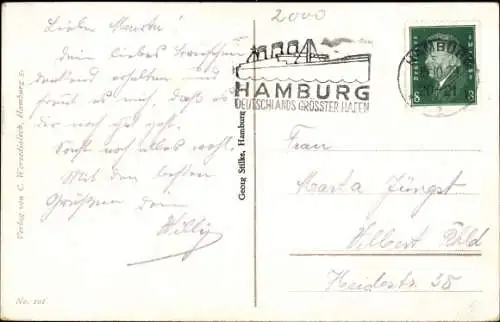 2000
Liebe Martha!
Dein liebes Briefchen
dankend erhalten und
freut es mich, daß es
dir noch gut geht.
Sonst noch alles wohl.
Mit den besten
Grüßen Dein
Willy
HAMBURG
HAMBURG
DEUTSCHLANDS GRÖSSTER HAFEN
8 8
Frau
Marta Jüngst
Velbert Rhld
Heidestr. 35
Verlag von C. Worzedialeck, Hamburg 2.
Georg Stilke, Hamburg
No. 101